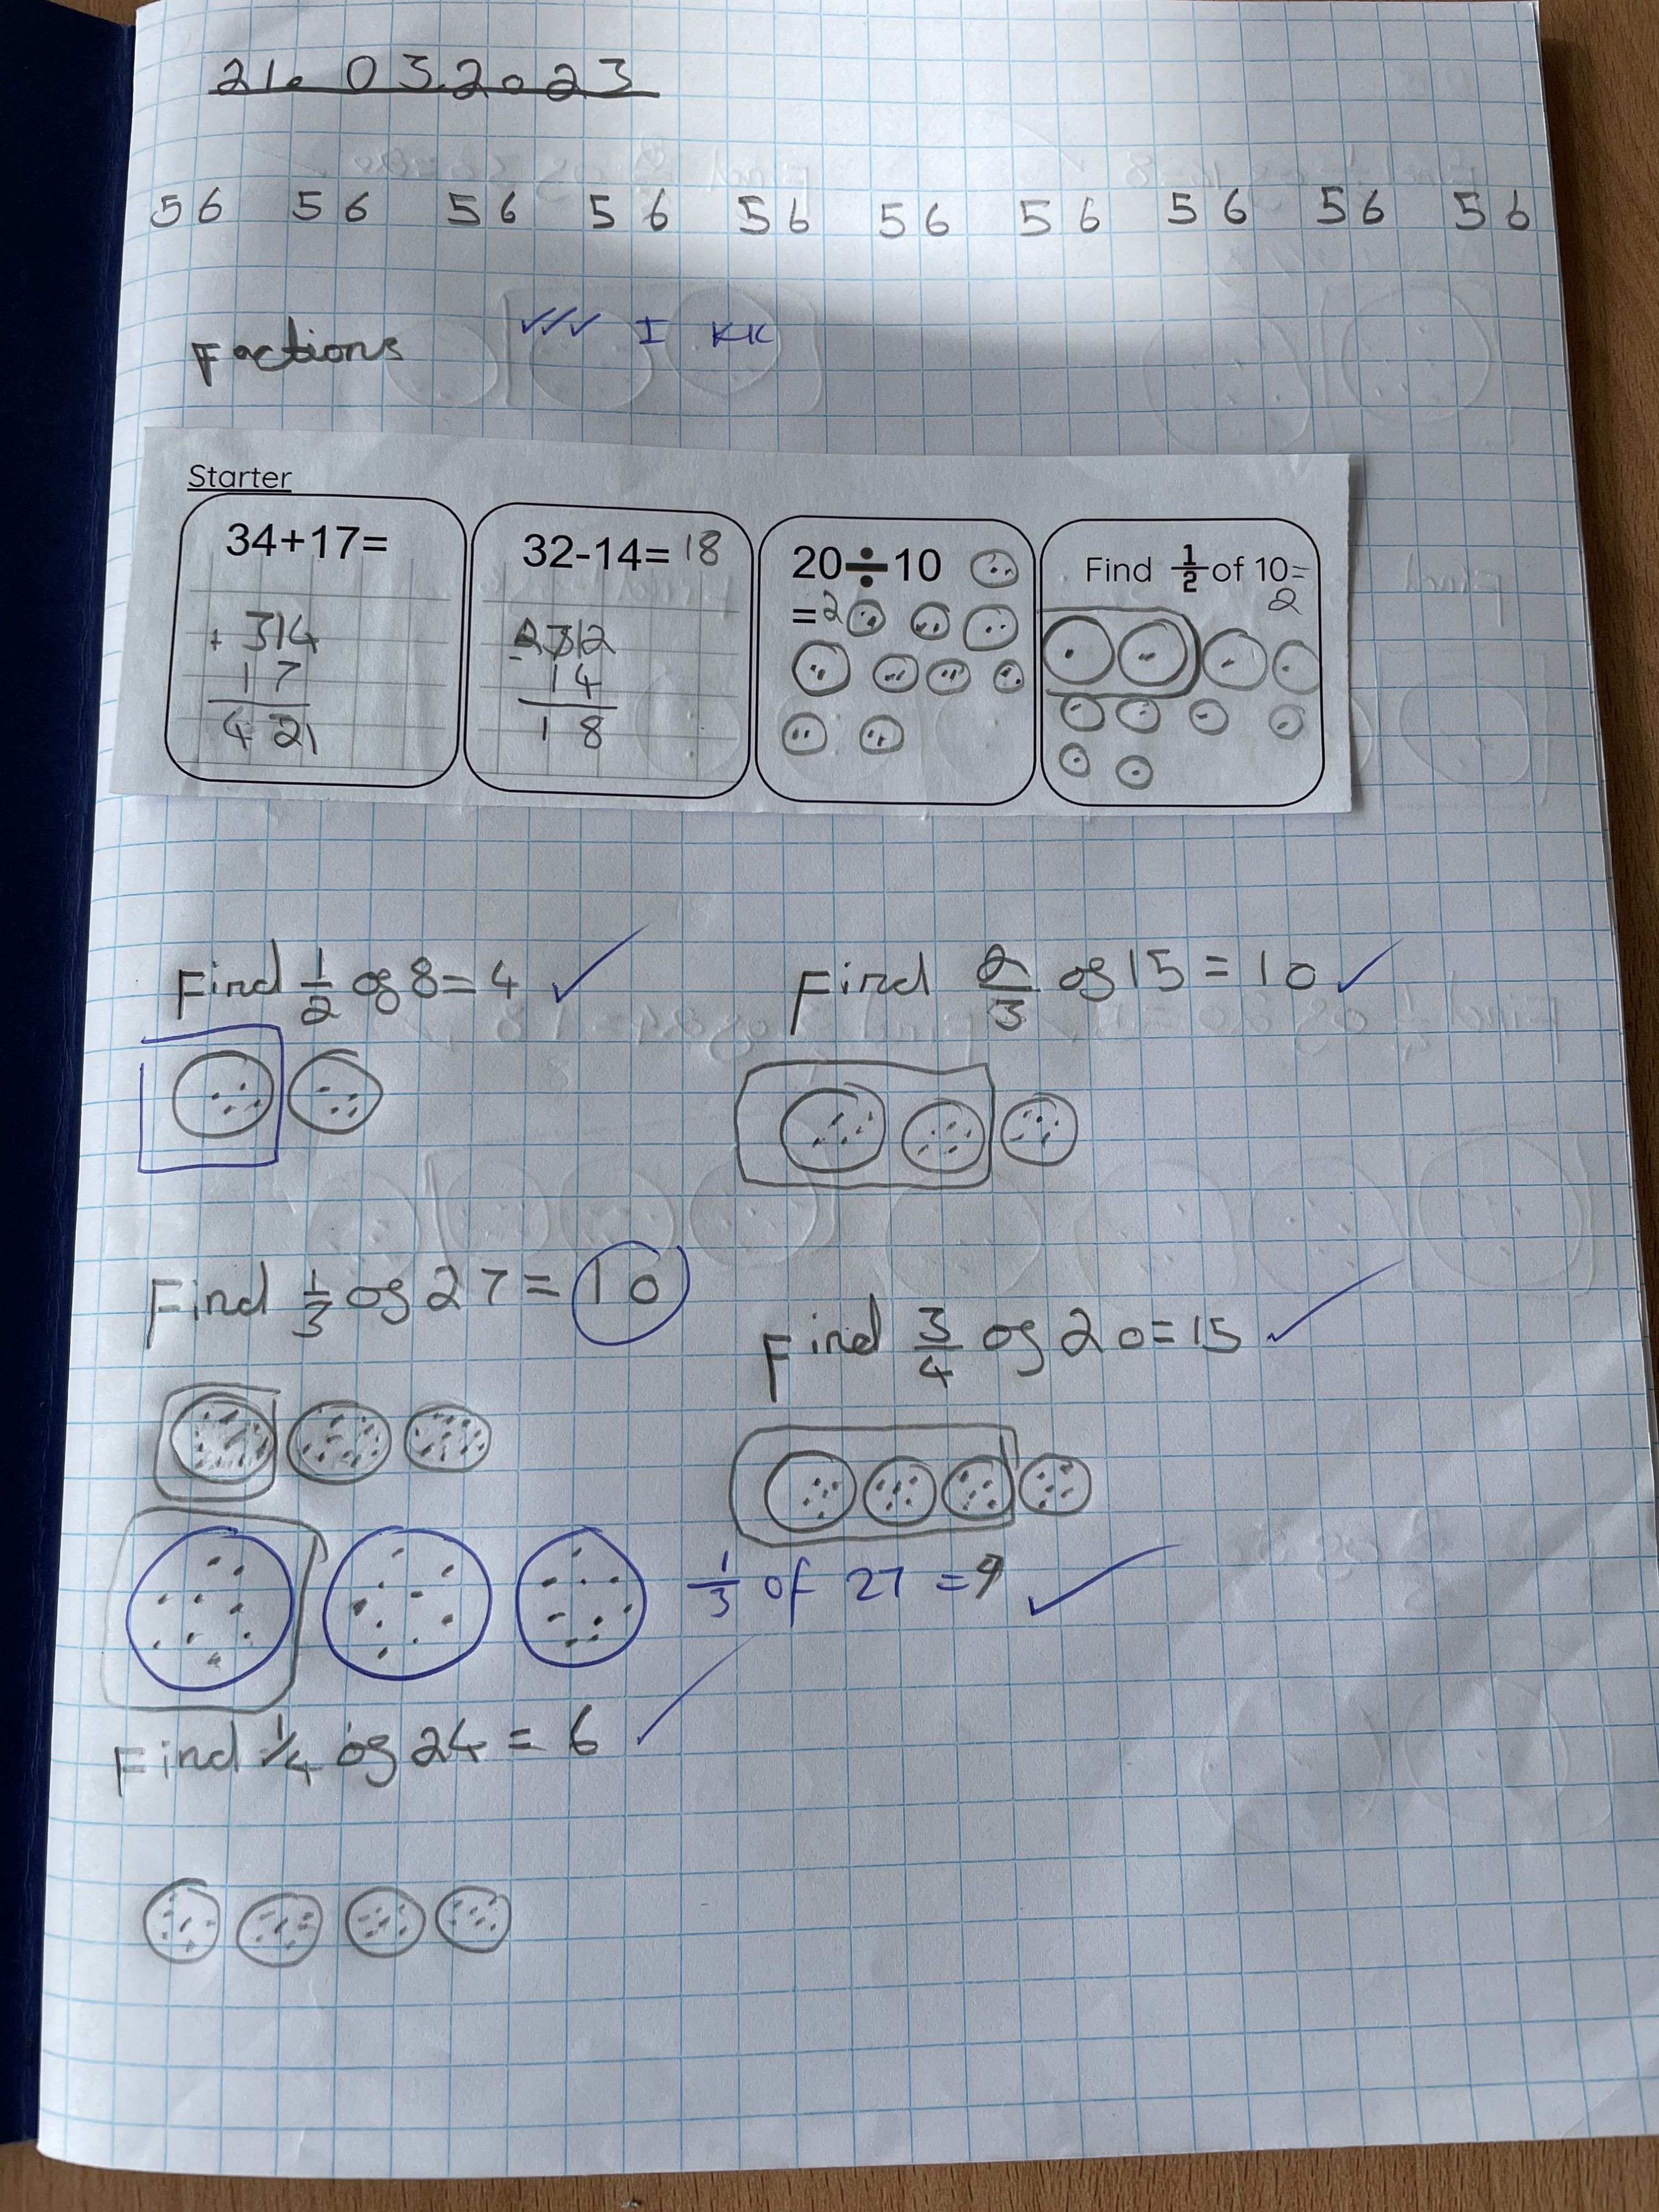 21.03.2023
56 56 56 56 56 56 56 56 56 56
Factions ✓✓✓ I KK
Starter
34+17=
+ 314
17
421
32-14=18
2312
- 14
18
20÷10
=2
Find 1/2 of 10=
2
Find 1/2 og 8=4 ✓
Find 2/3 og 15=10 ✓
Find 1/3 og 27=10
Find 3/4 og 20=15 ✓
1/3 of 27=9 ✓
Find 1/4 og 24=6 ✓